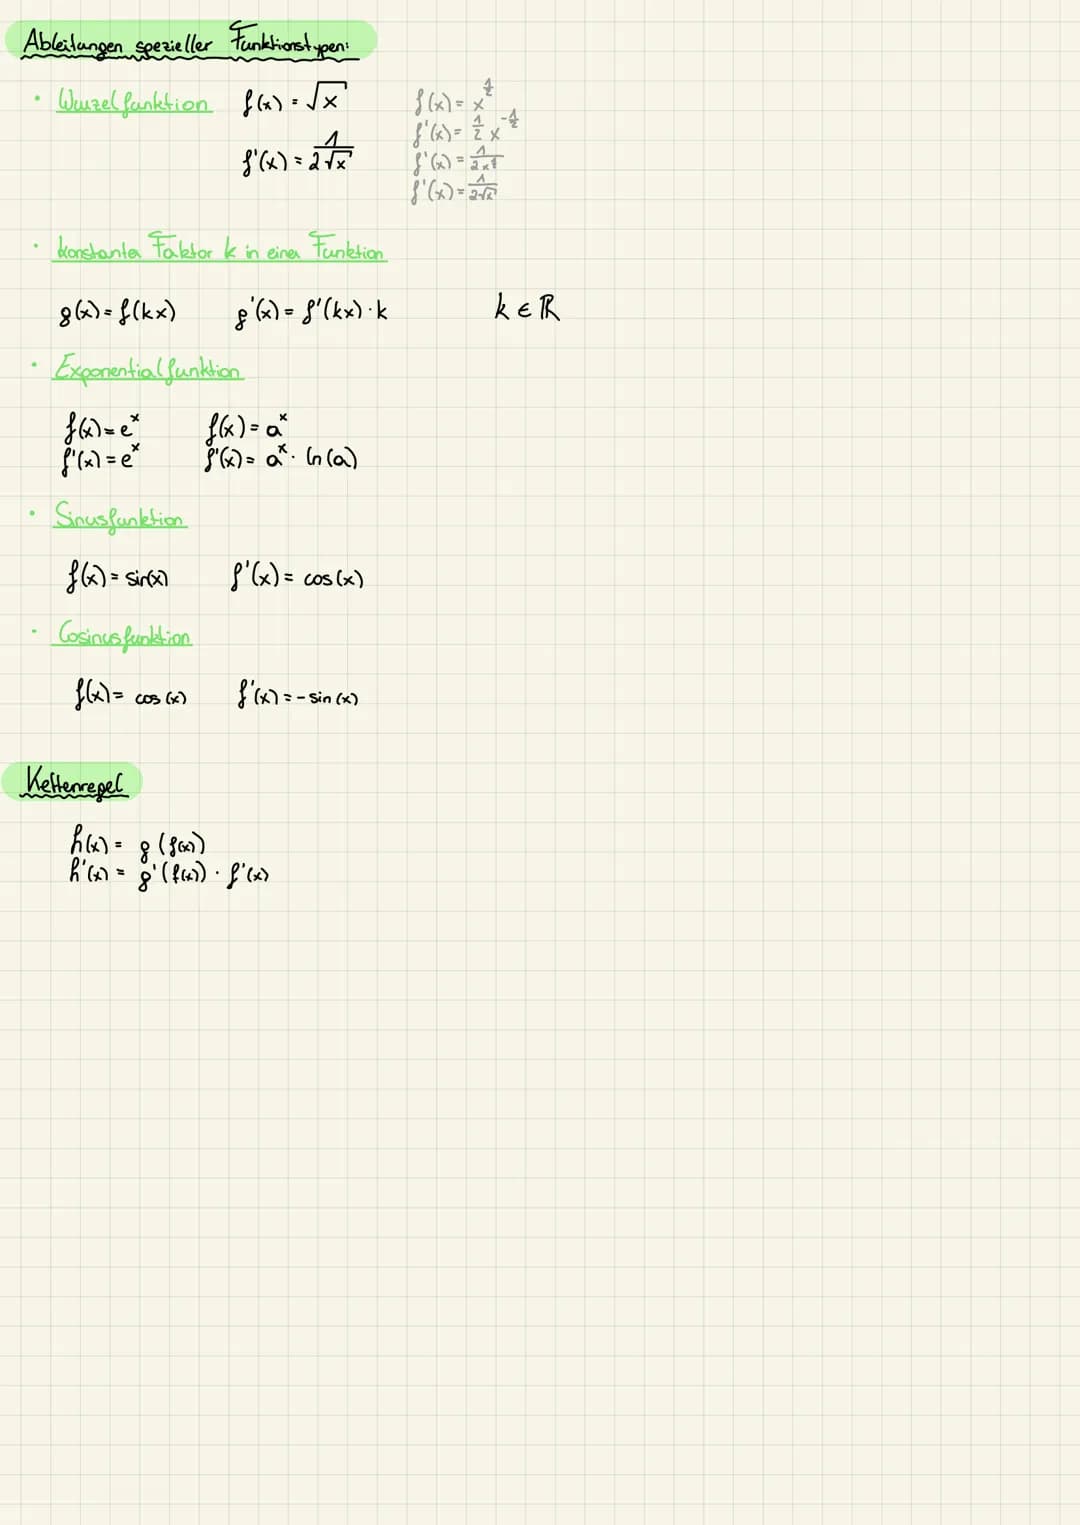 Ableitungen spezieller Funktionstypen:
• Wurzelfunktion f(x) = √x
f'(x) = 1/(2√x)
f(x) = x^(1/2)
f'(x) = 1/2 x^(-1/2)
f'(x) = 1/(2x^(1/2))
f'(x) = 1/(2√x)
• konstanter Faktor k in einer Funktion
g(x) = f(kx) g'(x) = f'(kx) · k k ∈ ℝ
• Exponentialfunktion
f(x) = e^x f(x) = a^x
f'(x) = e^x f'(x) = a^x · ln(a)
• Sinusfunktion
f(x) = sin(x) f'(x) = cos(x)
• Cosinusfunktion
f(x) = cos(x) f'(x) = -sin(x)
Kettenregel
h(x) = g(f(x))
h'(x) = g'(f(x)) · f'(x)